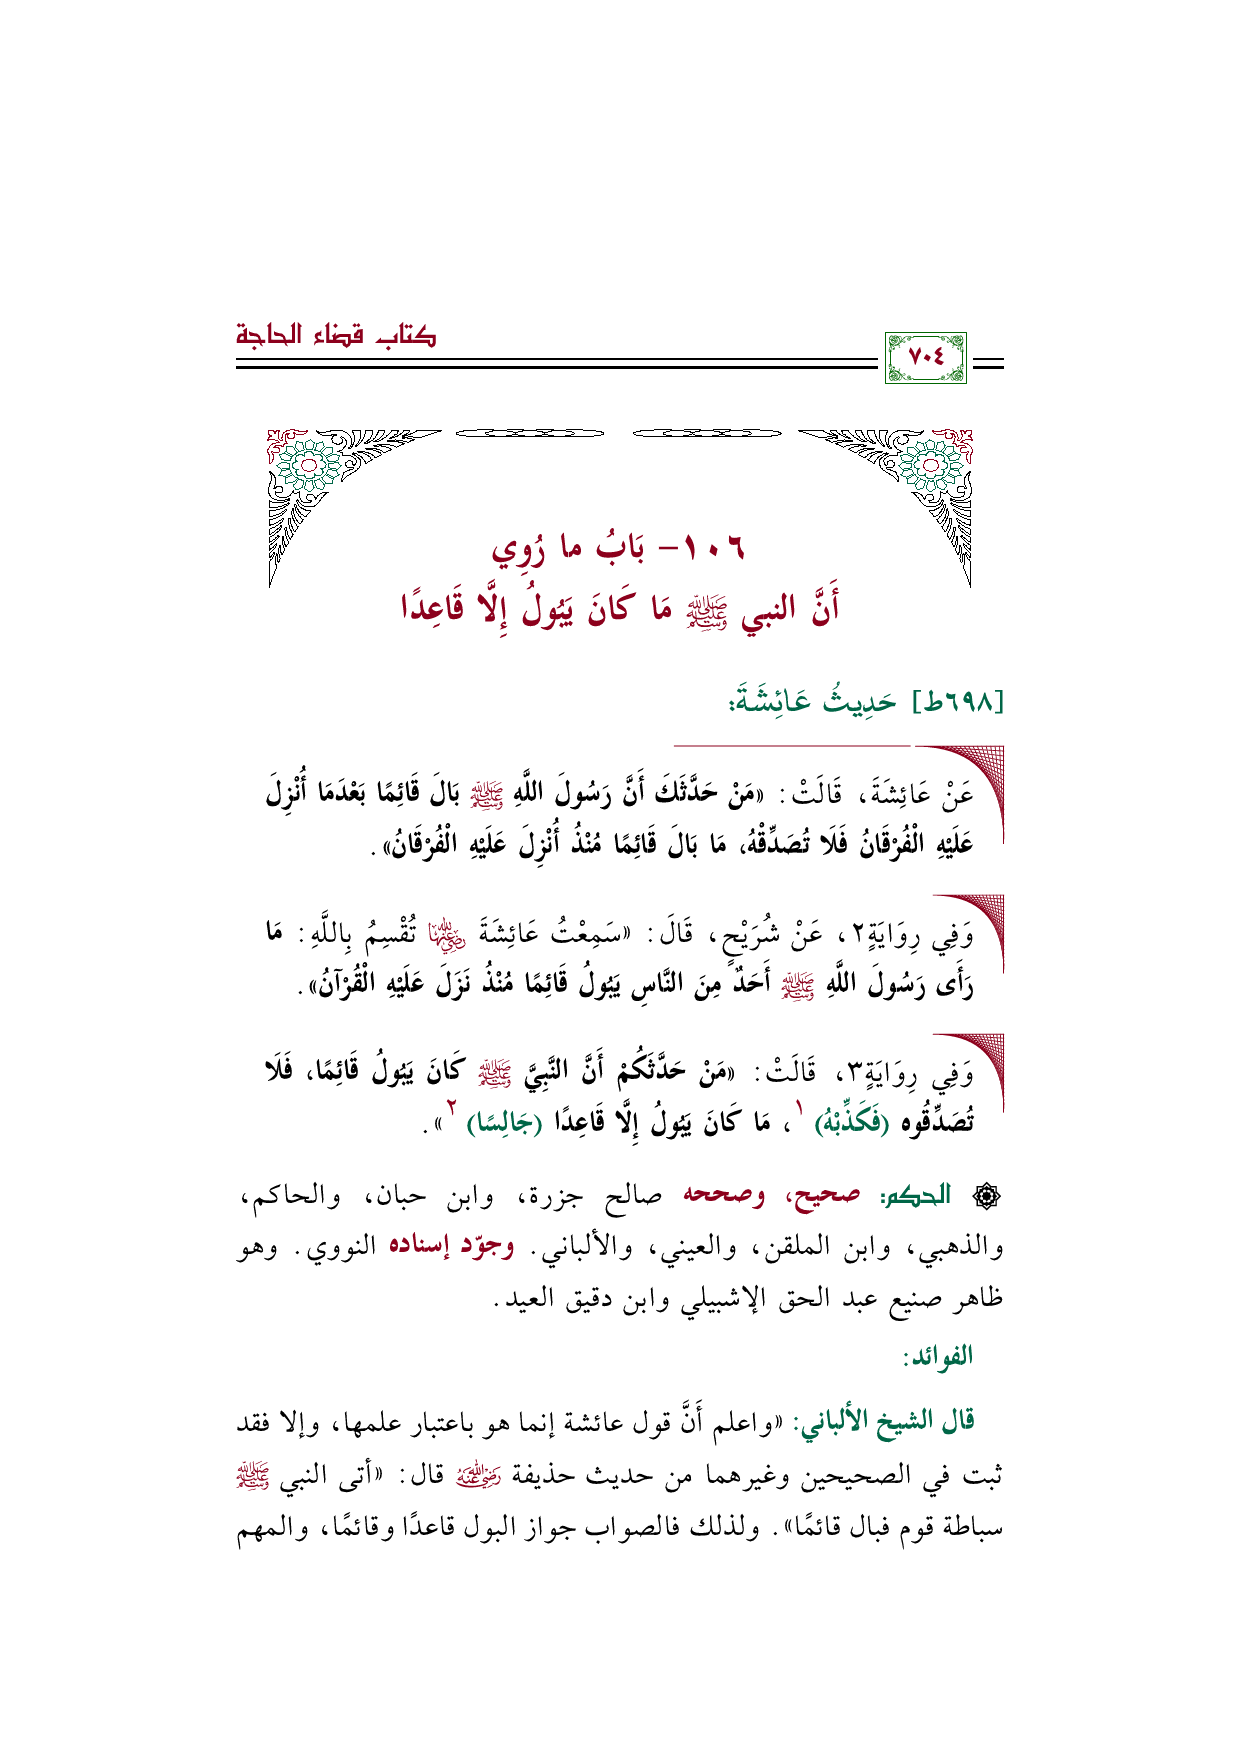 كتاب قضاء الحاجة
٧٠٤
١٠٦- بَابُ ما رُوِي
أَنَّ النبي ﷺ مَا كَانَ يَبُولُ إِلَّا قَاعِدًا
[٦٩٨ط] حَدِيثُ عَائِشَةَ:
عَنْ عَائِشَةَ، قَالَتْ: «مَنْ حَدَّثَكَ أَنَّ رَسُولَ اللَّهِ ﷺ بَالَ قَائِمًا بَعْدَمَا أُنْزِلَ
عَلَيْهِ الْفُرْقَانُ فَلَا تُصَدِّقْهُ، مَا بَالَ قَائِمًا مُنْذُ أُنْزِلَ عَلَيْهِ الْفُرْقَانُ».
وَفِي رِوَايَةٍ٢، عَنْ شُرَيْحٍ، قَالَ: «سَمِعْتُ عَائِشَةَ رضي الله عنها تُقْسِمُ بِاللَّهِ: مَا
رَأَى رَسُولَ اللَّهِ ﷺ أَحَدٌ مِنَ النَّاسِ يَبُولُ قَائِمًا مُنْذُ نَزَلَ عَلَيْهِ الْقُرْآنُ».
وَفِي رِوَايَةٍ٣، قَالَتْ: «مَنْ حَدَّثَكُمْ أَنَّ النَّبِيَّ ﷺ كَانَ يَبُولُ قَائِمًا، فَلَا
تُصَدِّقُوه (فَكَذِّبْهُ) ١، مَا كَانَ يَبُولُ إِلَّا قَاعِدًا (جَالِسًا) ٢».
الحكم: صحيح، وصححه صالح جزرة، وابن حبان، والحاكم،
والذهبي، وابن الملقن، والعيني، والألباني. وجوّد إسناده النووي. وهو
ظاهر صنيع عبد الحق الإشبيلي وابن دقيق العيد.
الفوائد:
قال الشيخ الألباني: «واعلم أَنَّ قول عائشة إنما هو باعتبار علمها، وإلا فقد
ثبت في الصحيحين وغيرهما من حديث حذيفة رضي الله عنه قال: «أتى النبي ﷺ
سباطة قوم فبال قائمًا». ولذلك فالصواب جواز البول قاعدًا وقائمًا، والمهم